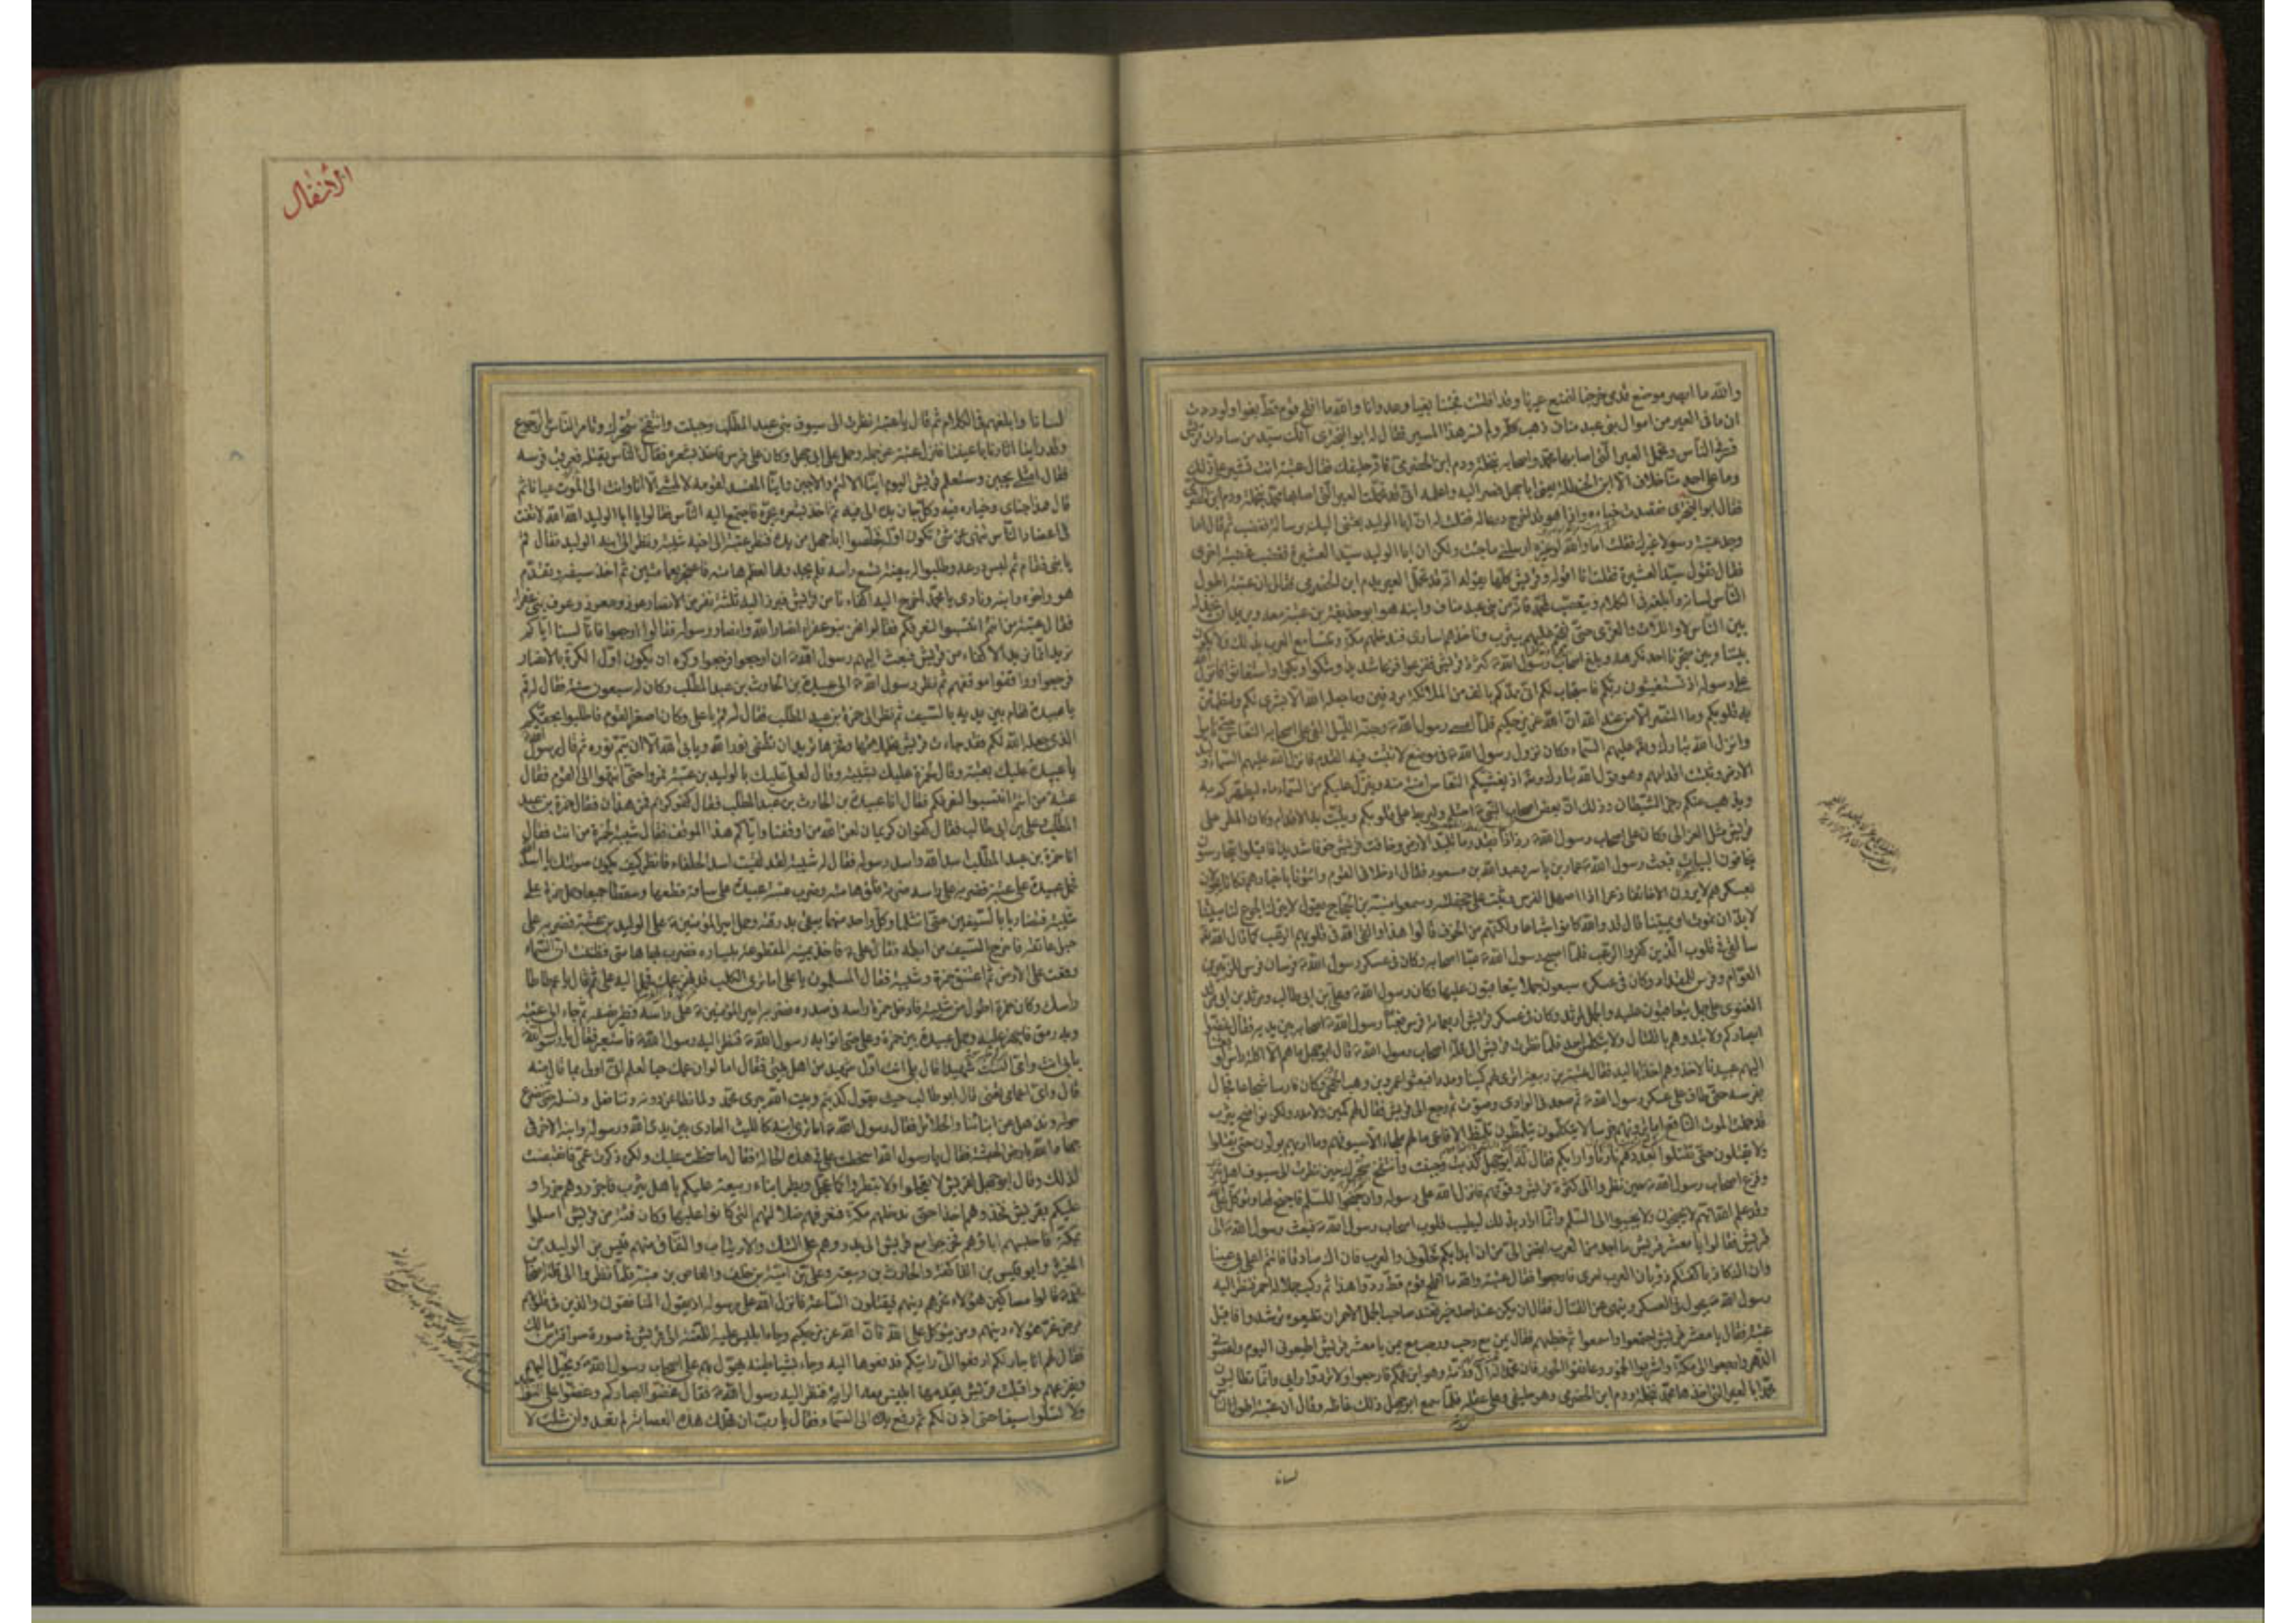 والله ما ابصر موضع قدمی خرجنا لنمنع عیرنا وقد افلتت فجئنا بغیا وعدوانا والله ما افلح قوم قط بغوا ولوددت
ان ما فی العیر من اموال بنی عبد مناف ذهب کله ولم نسر هذا المسیر فقال له ابو البختری انک سید من سادات قریش
فسر فی الناس وتحمل العیر التی اصابها محمد واصحابه بنخلة ودم ابن الحضرمی فانه حلیفک فقال عتبة انت تشیر علی بذلک
وما علی احد منا خلاف الا ابن الحنظلیة یعنی ابا جهل فسر الیه واعلمه انی قد تحملت العیر التی اصابها محمد بنخلة ودم ابن الحضرمی
فقال ابو البختری فقصدت خباءه واذا هو قد اخرج درعا له فقلت له ان ابا الولید بعثنی الیک برسالة فغضب ثم قال اما
وجد عتبة رسولا غیرک فقلت اما والله لو غیره ارسلنی ما جئت ولکن ان ابا الولید سید العشیرة فغضب غضبة اخری
فقال تقول سید العشیرة فقلت انا اقوله وقریش کلها تقوله انه قد تحمل العیر ودم ابن الحضرمی فقال ان عتبة اطول
الناس لسانا وابلغه فی الکلام ویتعصب لمحمد فانه من بنی عبد مناف وابنه
بین الناس لا واللات والعزی حتی نقحم علیهم بیثرب وناخذهم اساری فندخلهم مکة وتتسامع العرب بذلک ولا یکون
بیننا وبین متجرنا احد نکرهه وبلغ اصحاب رسول الله ص کثرة قریش ففزعوا فزعا شدیدا وشکوا وبکوا واستغاثوا فانزل الله
علی رسوله اذ تستغیثون ربکم فاستجاب لکم انی ممدکم بالف من الملائکة مردفین وما جعله الله الا بشری لکم ولتطمئن
به قلوبکم وما النصر الا من عند الله ان الله عزیز حکیم فلما امسی رسول الله ص وجنه اللیل القی علی اصحابه النعاس حتی ناموا
وانزل الله تبارک وتعالی علیهم السماء وکان نزول رسول الله ص فی موضع لا تثبت فیه القدم فانزل الله علیهم السماء ولبد
الارض وثبتت اقدامهم وهو قول الله تبارک وتعالی اذ یغشیکم النعاس امنة منه وینزل علیکم من السماء ماء لیطهرکم به
ویذهب عنکم رجز الشیطان وذلک ان بعض اصحاب النبی ص احتلم ولیربط علی قلوبکم ویثبت به الاقدام وکان المطر علی
قریش مثل العزالی وکان علی اصحاب رسول الله ص رذاذا بقدر ما تلبد الارض وخافت قریش خوفا شدیدا فاقبلوا یتحارسون
یخافون البیات فبعث رسول الله ص عمار بن یاسر وعبد الله بن مسعود فقال ادخلا فی القوم وائتونا باخبارهم فکانا یجولان
بعسکرهم لا یرون الا خائفا ذعرا اذا اصهل الفرس وثبت علی جحفلته وسمعوا منبه بن الحجاج یقول لا یترک الجوع لنا مبیتا
لابد ان نموت او نمیتنا قال قد والله کانوا شباعا ولکنهم من الخوف قالوا هذا والقی الله فی قلوبهم الرعب کما قال الله تعالی
سالقی فی قلوب الذین کفروا الرعب فلما اصبح رسول الله ص عبا اصحابه وکان فی عسکر رسول الله ص فرسان فرس للزبیر بن
العوام وفرس للمقداد وکان فی عسکره سبعون جملا یتعاقبون علیها وکان رسول الله ص وعلی بن ابی طالب ومرثد بن ابی مرثد
الغنوی علی جمل یتعاقبون علیه والجمل لمرثد وکان فی عسکر قریش اربعمائة فرس فعبا رسول الله ص اصحابه بین یدیه فقال غضوا
ابصارکم ولا تبدوهم بالقتال ولا یتکلمن احد فلما نظرت قریش الی قلة اصحاب رسول الله ص قال ابو جهل ما هم الا اکلة راس لو بعثنا
الیهم عبیدنا لاخذوهم اخذا بالید فقال عتبة بن ربیعة اتری لهم کمینا ومددا فبعثوا عمرو بن وهب الجمحی وکان فارسا شجاعا فجال
بفرسه حتی طاف علی عسکر رسول الله ص ثم صعد فی الوادی وصوب ثم رجع الی قریش فقال لهم کمین ولا مدد ولکن نواضح یثرب
قد حملت الموت الناقع اما ترونهم خرسا لا یتکلمون یتلمظون تلمظ الافاعی ما لهم ملجا الا سیوفهم وما اریهم یولون حتی یقتلوا
ولا یقتلون حتی یقتلوا بعددهم فارتاوا رایکم فقال له ابو جهل کذبت وجبنت وانتفخ سحرک حین نظرت الی سیوف اهل یثرب
وفزع اصحاب رسول الله ص حین نظروا الی کثرة قریش وقوتهم فانزل الله علی رسوله وان جنحوا للسلم فاجنح لها وتوکل علی الله
وقد علم الله انهم لا یجنحون ولا یجیبون الی السلم وانما اراد بذلک لیطیب قلوب اصحاب رسول الله ص فبعث رسول الله ص الی
قریش فقال یا معشر قریش ما احد من العرب ابغض الی من ان ابدا بکم فخلونی والعرب فان اک صادقا فانتم اعلی بی عینا
وان اک کاذبا کفتکم ذؤبان العرب امری فارجعوا فقال عتبة والله ما افلح قوم قط ردوا هذا ثم رکب جملا له احمر فنظر الیه
رسول الله ص یجول فی العسکر وینهی عن القتال فقال ان یکن عند احد خیر فعند صاحب الجمل الاحمر ان تطیعوه ترشدوا فاقبل
عتبة فقال یا معشر قریش اجتمعوا واسمعوا ثم خطبهم فقال یمن مع رحب ورحب مع یمن یا معشر قریش اطیعونی الیوم واعصونی
الدهر وارجعوا الی مکة واشربوا الخمور وعانقوا الحور فان محمدا له ال وذمة وهو ابن عمکم فارجعوا ولا تردوا رایی وانما تطالبون
محمدا بالعیر التی اخذها محمد بنخلة ودم ابن الحضرمی وهو حلیفی وعلی عقله فلما سمع ابو جهل ذلک غاظه وقال ان عتبة اطول الناس
لسانا
الانفال
لسانا وابلغهم فی الکلام ثم قال یا عتبة نظرت الی سیوف بنی عبد المطلب وجبنت وانتفخ سحرک وتامر الناس بالرجوع
وقد راینا ثارنا باعیننا فنزل عتبة عن جمله وحمل علی ابی جهل وکان علی فرس فاخذ بشعره فقال الناس یقتله فعرقب فرسه
فقال امثلی یجبن وستعلم قریش الیوم اینا الالم والاجبن واینا المفسد لقومه لا یمشی الا انا وانت الی الموت عیانا ثم
قال هذا جنای وخیاره فیه وکل جان یده الی فیه ثم اخذ بشعره یجره فاجتمع الیه الناس فقالوا یا ابا الولید الله الله لا تفت
فی اعضاد الناس تنهی عن شیء تکون اوله فخلصوا ابا جهل من یده فنظر عتبة الی اخیه شیبة ونظر الی ابنه الولید فقال قم
یا بنی فقام ثم لبس درعه وطلبوا له بیضة تسع راسه فلم یجدوها لعظم هامته فاعتجر بعمامتین ثم اخذ سیفه وتقدم
هو واخوه وابنه ونادی یا محمد اخرج الینا اکفاءنا من قریش فبرز الیه ثلثة نفر من الانصار عوذ ومعوذ وعوف بنی عفرا
فقال عتبة من انتم انتسبوا لنعرفکم فقالوا نحن بنو عفراء انصار الله وانصار رسوله فقالوا ارجعوا فانا لسنا ایاکم
نرید انما نرید الاکفاء من قریش فبعث الیهم رسول الله ص ان ارجعوا فرجعوا وکره ان یکون اول الکرة بالانصار
فرجعوا ووقفوا موقفهم ثم نظر رسول الله ص الی عبیدة بن الحارث بن عبد المطلب وکان له سبعون سنة فقال له قم
یا عبیدة فقام بین یدیه بالسیف ثم نظر الی حمزة بن عبد المطلب فقال له قم یا علی وکان اصغر القوم فاطلبوا بحقکم
الذی جعله الله لکم فقد جاءت قریش بخیلائها وفخرها ترید ان تطفی نور الله ویابی الله الا ان یتم نوره ثم قال رسول الله
یا عبیدة علیک بعتبة وقال لحمزة علیک بشیبة وقال لعلی علیک بالولید بن عتبة فمروا حتی انتهوا الی القوم فقال
عتبة من انتم انتسبوا لنعرفکم فقال انا عبیدة بن الحارث بن عبد المطلب فقال کفو کریم فمن هذان فقال حمزة بن عبد
المطلب وعلی بن ابی طالب فقال کفوان کریمان لعن الله من اوقفنا وایاکم هذا الموقف فقال شیبة لحمزة من انت فقال
انا حمزة بن عبد المطلب اسد الله واسد رسوله فقال له شیبة لقد لقیت اسد الحلفاء فانظر کیف یکون صولتک یا اسد الله
فحمل عبیدة علی عتبة فضربه علی راسه ضربة فلق هامته وضرب عتبة عبیدة علی ساقه قطعها وسقطا جمیعا وحمل حمزة علی
شیبة فتضاربا بالسیفین حتی انثلما وکل واحد منهما یتقی بدرقته وحمل امیر المؤمنین ع علی الولید بن عتبة فضربه علی
حبل عاتقه فاخرج السیف من ابطه فقال علی ع فاخذ یمینه المقطوعة بیساره فضرب بها هامتی فظننت ان السماء
وقعت علی الارض ثم اعتنق حمزة وشیبة فقال المسلمون یا علی اما تری الکلب قد بهر عمک فحمل الیه علی ثم قال یا عم طاطا
راسک وکان حمزة اطول من شیبة فادخل حمزة راسه فی صدره فضربه امیر المؤمنین ع علی راسه فطیر نصفه ثم جاء الی عتبة
وبه رمق فاجهز علیه وحمل عبیدة بین حمزة وعلی حتی اتوا به رسول الله ص فنظر الیه رسول الله ص فاستعبر فقال یا رسول الله
بابی انت وامی الست شهیدا قال بلی انت اول شهید من اهل بیتی فقال اما لو ان عمک حیا لعلم انی اولی بما قال منه
قال وای اعمامی تعنی قال ابو طالب حیث یقول کذبتم وبیت الله یبری محمد ولما نطاعن دونه ونناضل ونسلمه حتی نصرع
حوله ونذهل عن ابنائنا والحلائل فقال رسول الله ص اما تری ابنه کاللیث العادی بین یدی الله ورسوله وابنه الاخر فی
جهاد الله بارض الحبشة فقال یا رسول الله اسخطت علی فی هذه الحالة فقال ما سخطت علیک ولکن ذکرت عمی فانقبضت
لذلک وقال ابو جهل لقریش لا تعجلوا ولا تبطروا کما عجل وبطر ابناء ربیعة علیکم باهل یثرب فاجزروهم جزرا و
علیکم بقریش فخذوهم اخذا حتی ندخلهم مکة فنعرفهم ضلالتهم التی کانوا علیها وکان فتیة من قریش اسلموا
بمکة فاحتبسهم اباؤهم فخرجوا مع قریش الی بدر وهم علی الشک والارتیاب والنفاق منهم قیس بن الولید بن
المغیرة وابو قیس بن الفاکهة والحارث بن ربیعة وعلی بن امیة بن خلف والعاص بن منبه فلما نظروا الی قلة اصحاب
محمد ص قالوا مساکین هؤلاء غرهم دینهم فیقتلون الساعة فانزل الله علی رسوله اذ یقول المنافقون والذین فی قلوبهم
مرض غر هؤلاء دینهم ومن یتوکل علی الله فان الله عزیز حکیم وجاء ابلیس علیه اللعنة الی قریش فی صورة سراقة بن مالک
فقال لهم انا جارکم ادفعوا الی رایتکم فدفعوها الیه وجاء بشیاطینه یهول بهم علی اصحاب رسول الله ص ویخیل الیهم
ویفزعهم واقبلت قریش یقدمها ابلیس معه الرایة فنظر الیه رسول الله ص فقال غضوا ابصارکم وعضوا علی النواجد
ولا تسلوا سیفا حتی اذن لکم ثم رفع یده الی السماء وقال یا رب ان تهلک هذه العصابة لم تعبد وان شئت لا